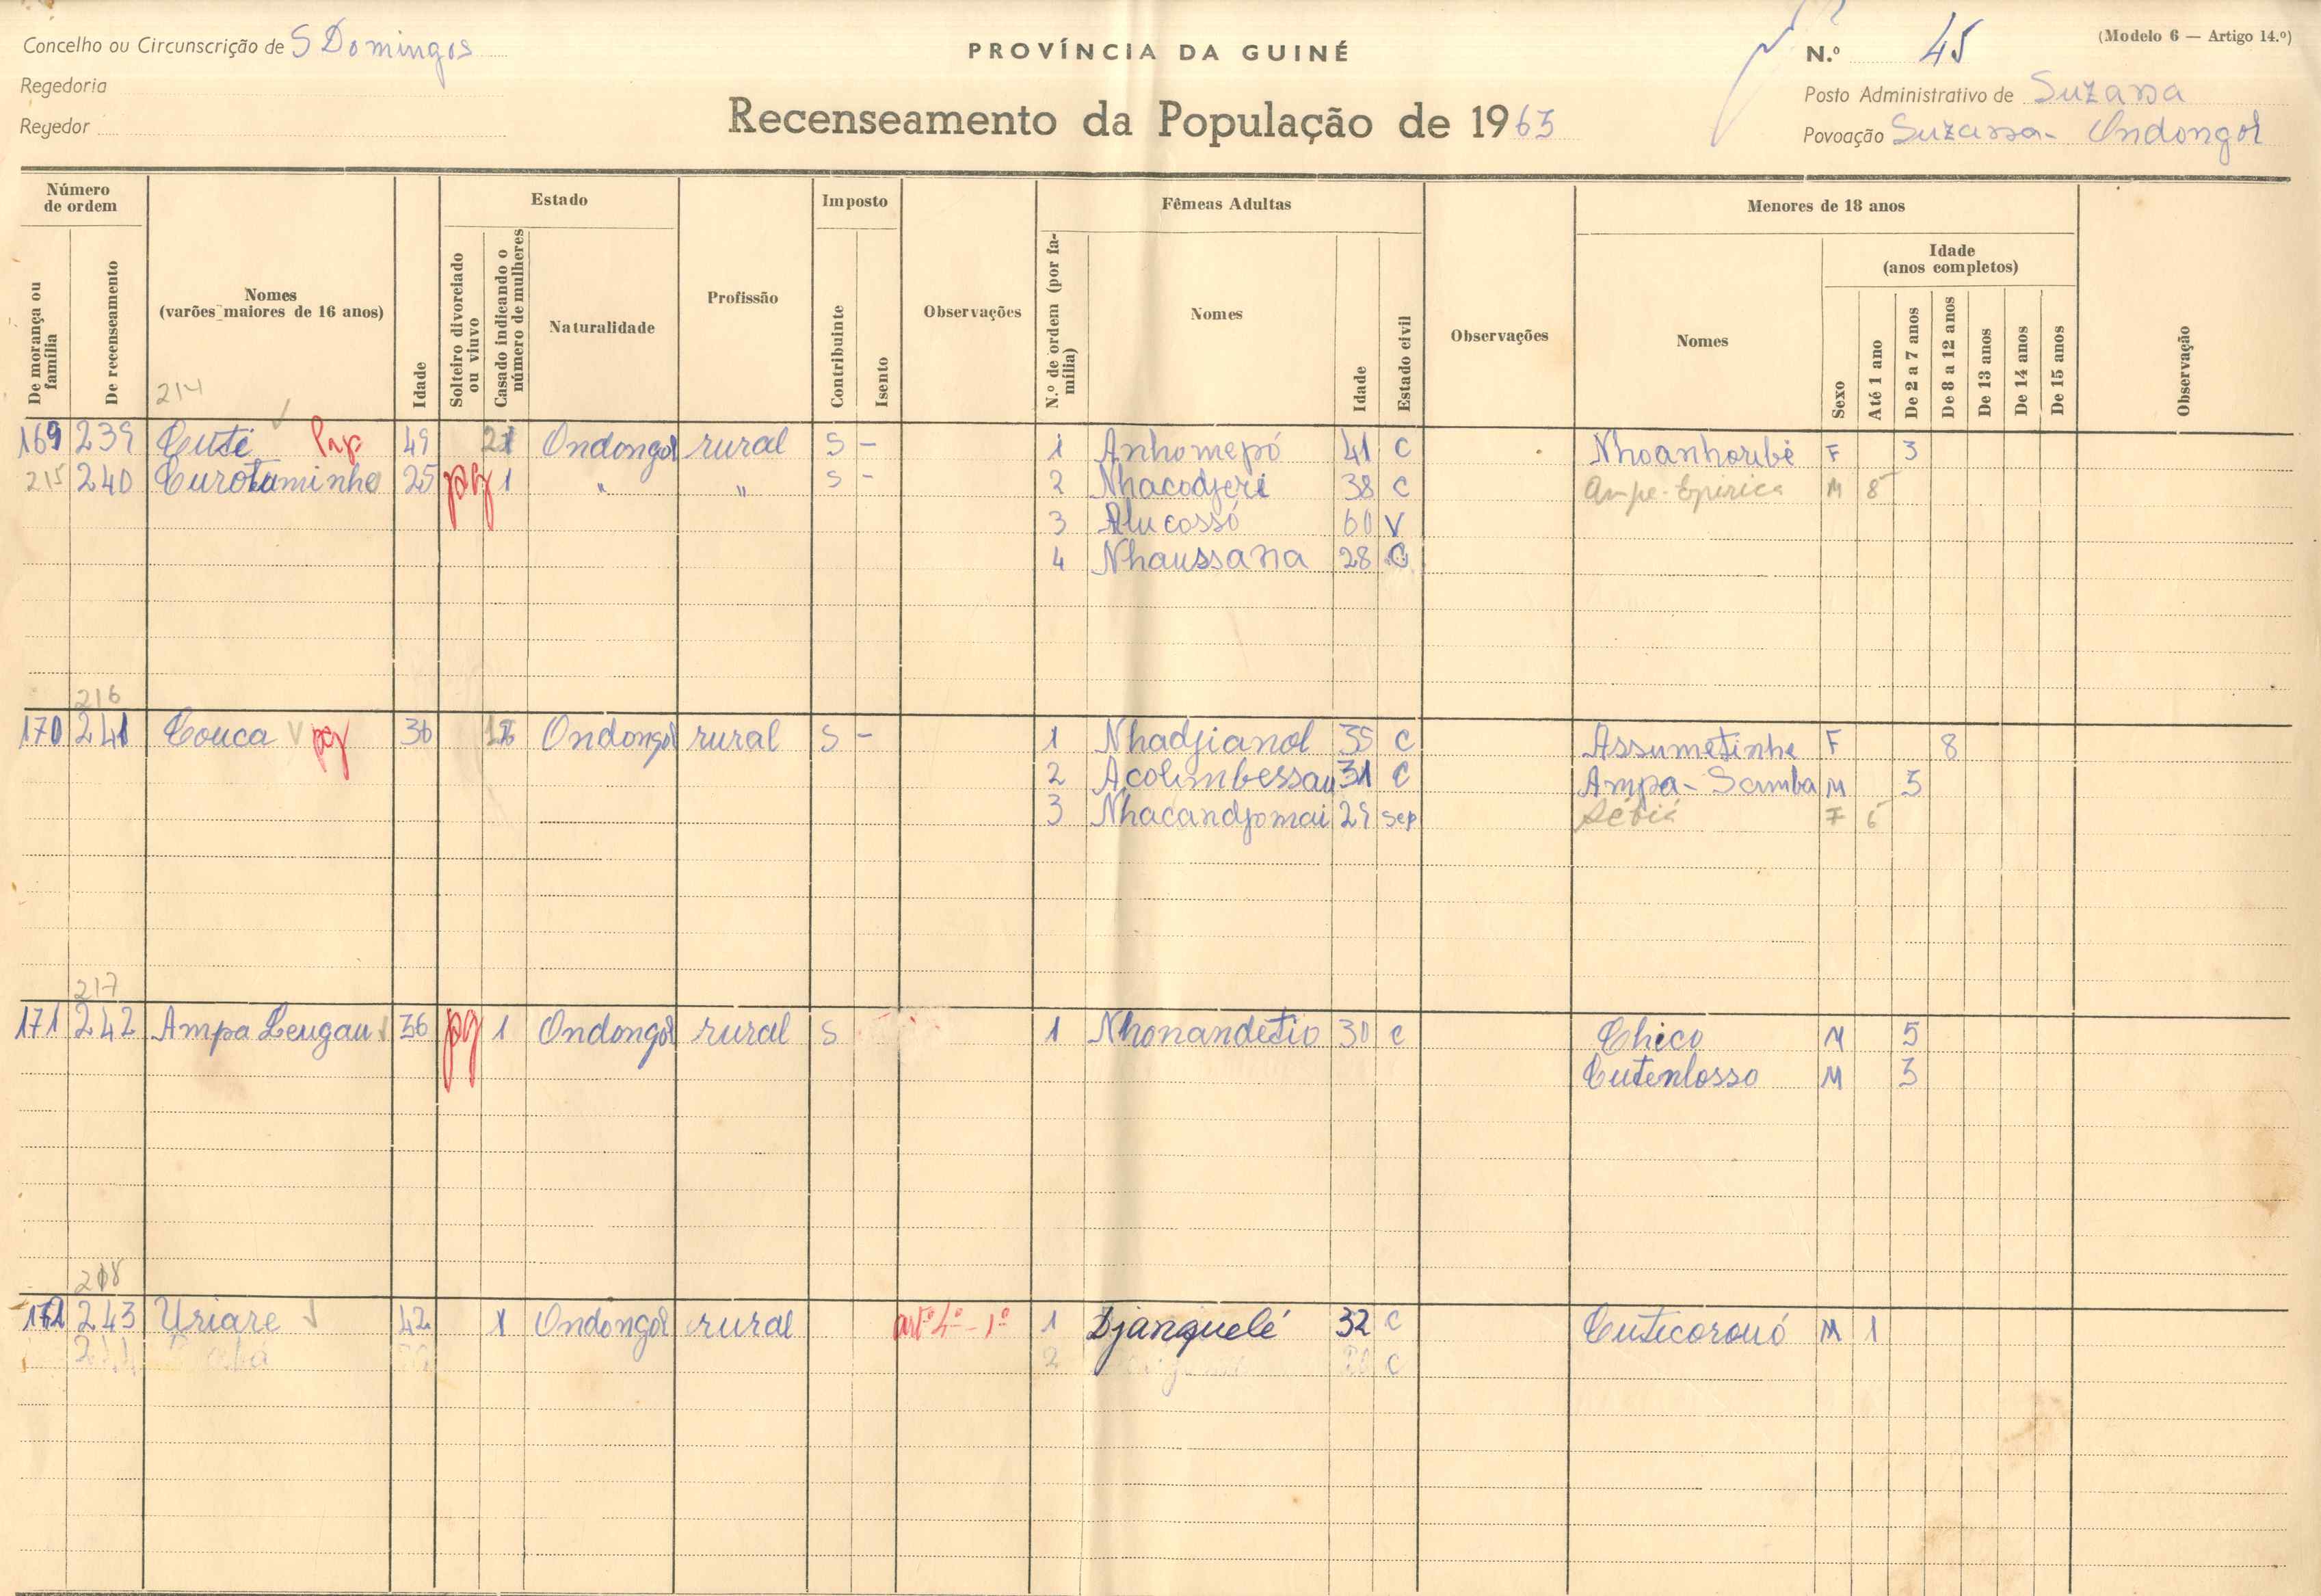 Concelho ou Circunscrição de S Domingos
Regedoria
Regedor
PROVÍNCIA DA GUINÉ
Recenseamento da População de 1963
(Modelo 6 — Artigo 14.º)
N.º 45
Posto Administrativo de Suzana
Povoação Suzana - Ondongol
Número de ordem
De morança ou família
De recenseamento
Nomes (varões maiores de 16 anos)
Idade
Estado
Solteiro divorciado ou viuvo
Casado indicando o número de mulheres
Naturalidade
Profissão
Imposto
Contribuinte
Isento
Observações
Fêmeas Adultas
N.º de ordem (por família)
Nomes
Idade
Estado civil
Observações
Menores de 18 anos
Nomes
Sexo
Idade (anos completos)
Até 1 ano
De 2 a 7 anos
De 8 a 12 anos
De 13 anos
De 14 anos
De 15 anos
Observação
214
169 239 Cuté 49 Ondongol rural S - 1 Anhomepó 41 C Nhoanhoribé F 3
215 240 Curotaminho 25 pg 1 " " S - 2 Nhacodjeri 38 C Ampe-Epirica M 8
3 Alucossó 60 V
4 Nhaussana 28 C
216
170 241 Couca pg 36 Ondongol rural S - 1 Nhadjianol 35 C Assumetinhe F 8
2 Acolimbessau 31 C Ampa-Samba M 5
3 Nhacandjomai 29 sep F 6
217
171 242 Ampa Leugau 36 pg 1 Ondongol rural S 1 Nhonandetio 30 C Chico M 5
Cutenlosso M 3
218
172 243 Uriare 42 1 Ondongol rural artº 4º - 1º 1 Djanguelé 32 C Cuticorouó M 1
2 C